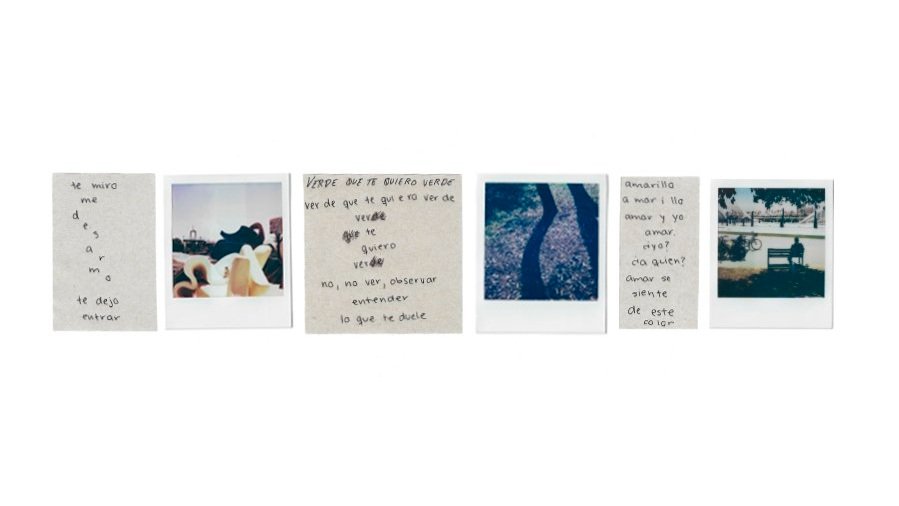 te miro
me
d
e
s
a
r
m
o
te dejo
entrar
VERDE QUE TE QUIERO VERDE
ver de que te qui e ro ver de
verde
que te
quiero
verde
no, no ver, observar
entender
lo que te duele
amarillo
a mar i llo
amar y yo
amar.
¿yo?
¿a quien?
amar se
siente
de este
color